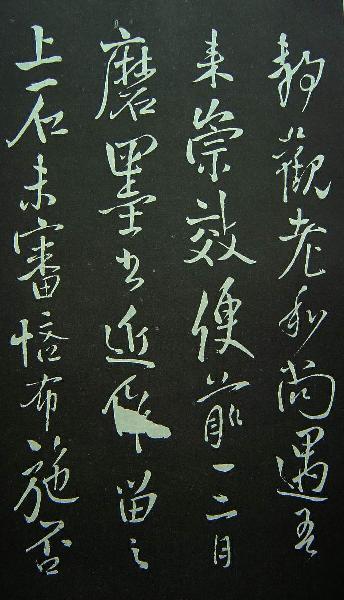 静觀老和尚遇吾
来崇效便前一二日
磨墨書近作留之
上石未審悋布施否